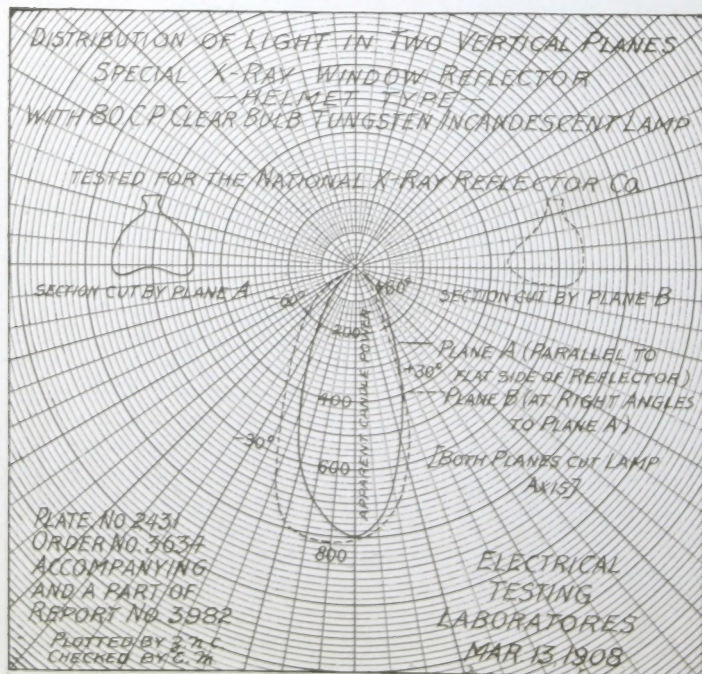 DISTRIBUTION OF LIGHT IN TWO VERTICAL PLANES
SPECIAL X-RAY WINDOW REFLECTOR
—HELMET TYPE—
WITH 80 C P CLEAR BULB TUNGSTEN INCANDESCENT LAMP
TESTED FOR THE NATIONAL X-RAY REFLECTOR CO.
SECTION CUT BY PLANE A
SECTION CUT BY PLANE B
-60°
+60°
200
APPARENT CANDLE POWER
PLANE A (PARALLEL TO
FLAT SIDE OF REFLECTOR)
+30°
400
PLANE B (AT RIGHT ANGLES
TO PLANE A)
-30°
600
[BOTH PLANES CUT LAMP
AXIS]
800
PLATE NO 2431
ORDER NO. 3634
ACCOMPANYING
AND A PART OF
REPORT NO 3982
PLOTTED BY
CHECKED BY
ELECTRICAL
TESTING
LABORATORES
MAR. 13, 1908